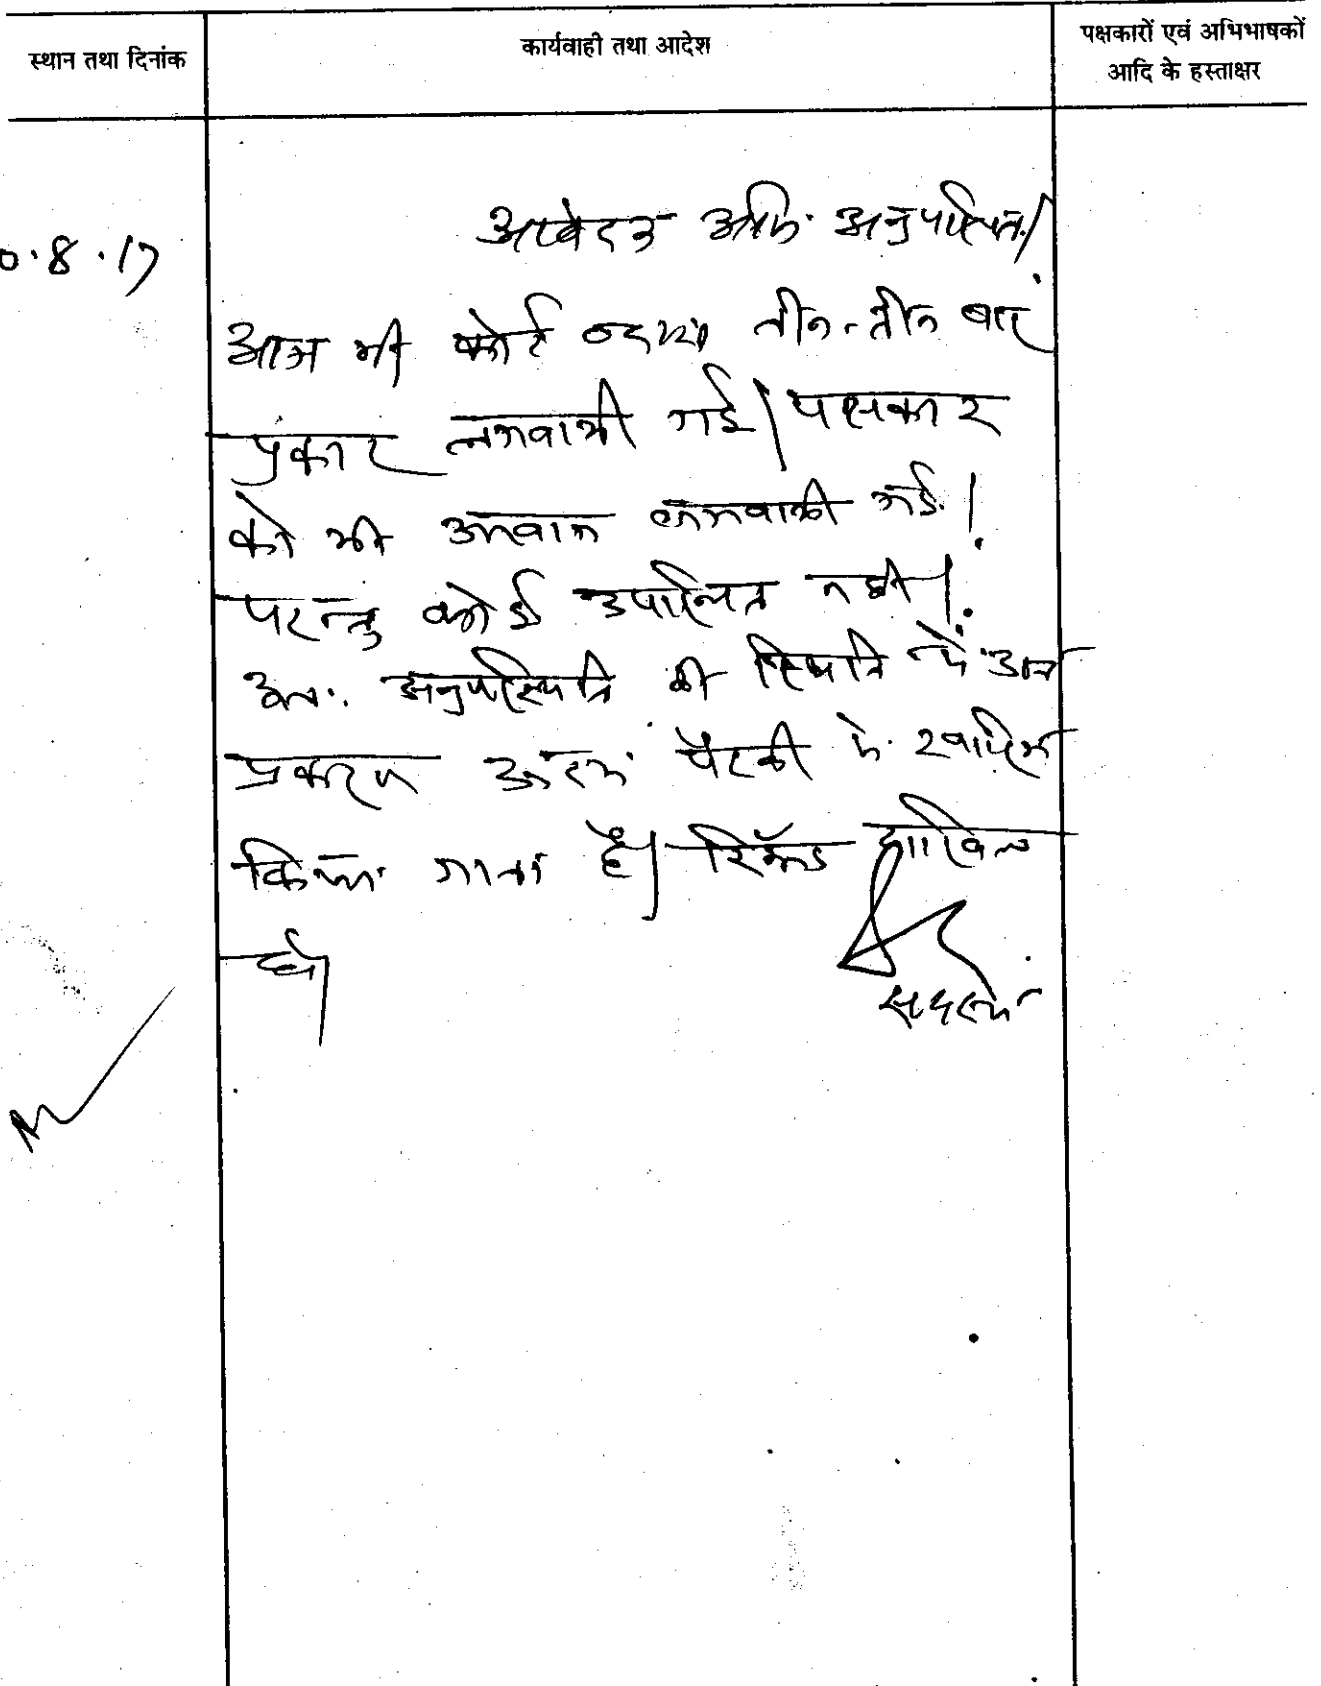 स्थान तथा दिनांक
कार्यवाही तथा आदेश
पक्षकारों एवं अभिभाषकों
आदि के हस्ताक्षर
0.8.17
आवेदक अभि. अनुपस्थित।
आज भी कोर्ट द्वारा तीन-तीन बार
पुकार लगवायी गई। पक्षकार
को भी आवाज लगवायी गई।
परन्तु कोई उपस्थित नहीं।
अतः अनुपस्थिति की स्थिति में
प्रकरण अदम पैरवी में खारिज
किया जाता है। रिकॉर्ड दाखिल
हो।
सदस्य